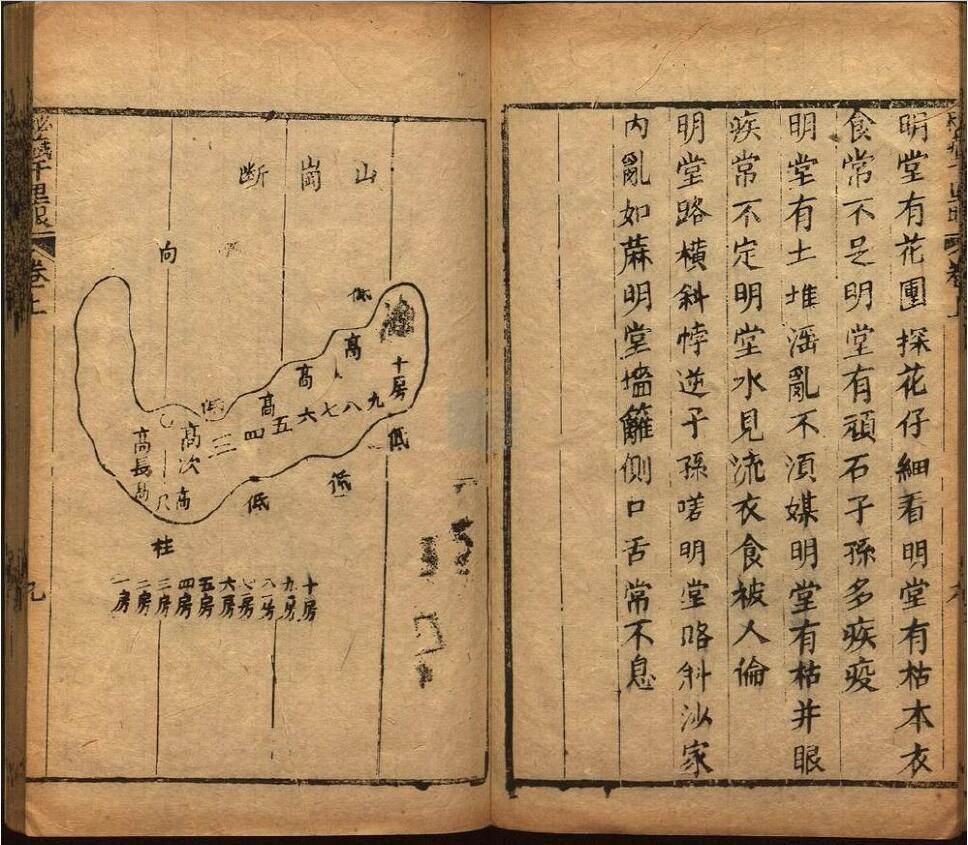 明堂有花團探花仔細看明堂有枯本衣
食常不足明堂有頑石子孫多疾疫
明堂有土堆滛亂不湏媒明堂有枯井眼
疾常不定明堂水見流衣食被人偷
明堂路橫斜悖逆子孫嗟明堂路斜沙家
内亂如蔴明堂墻籬側口舌常不息
卷上
山崗断
向
低
高
高
高
低
十房
九
八
七
六
五
四
三
高次
高長房
高
低
低
低
柱
十房
九房
八房
七房
六房
五房
四房
三房
二房
一房
千里眼
卷上
九